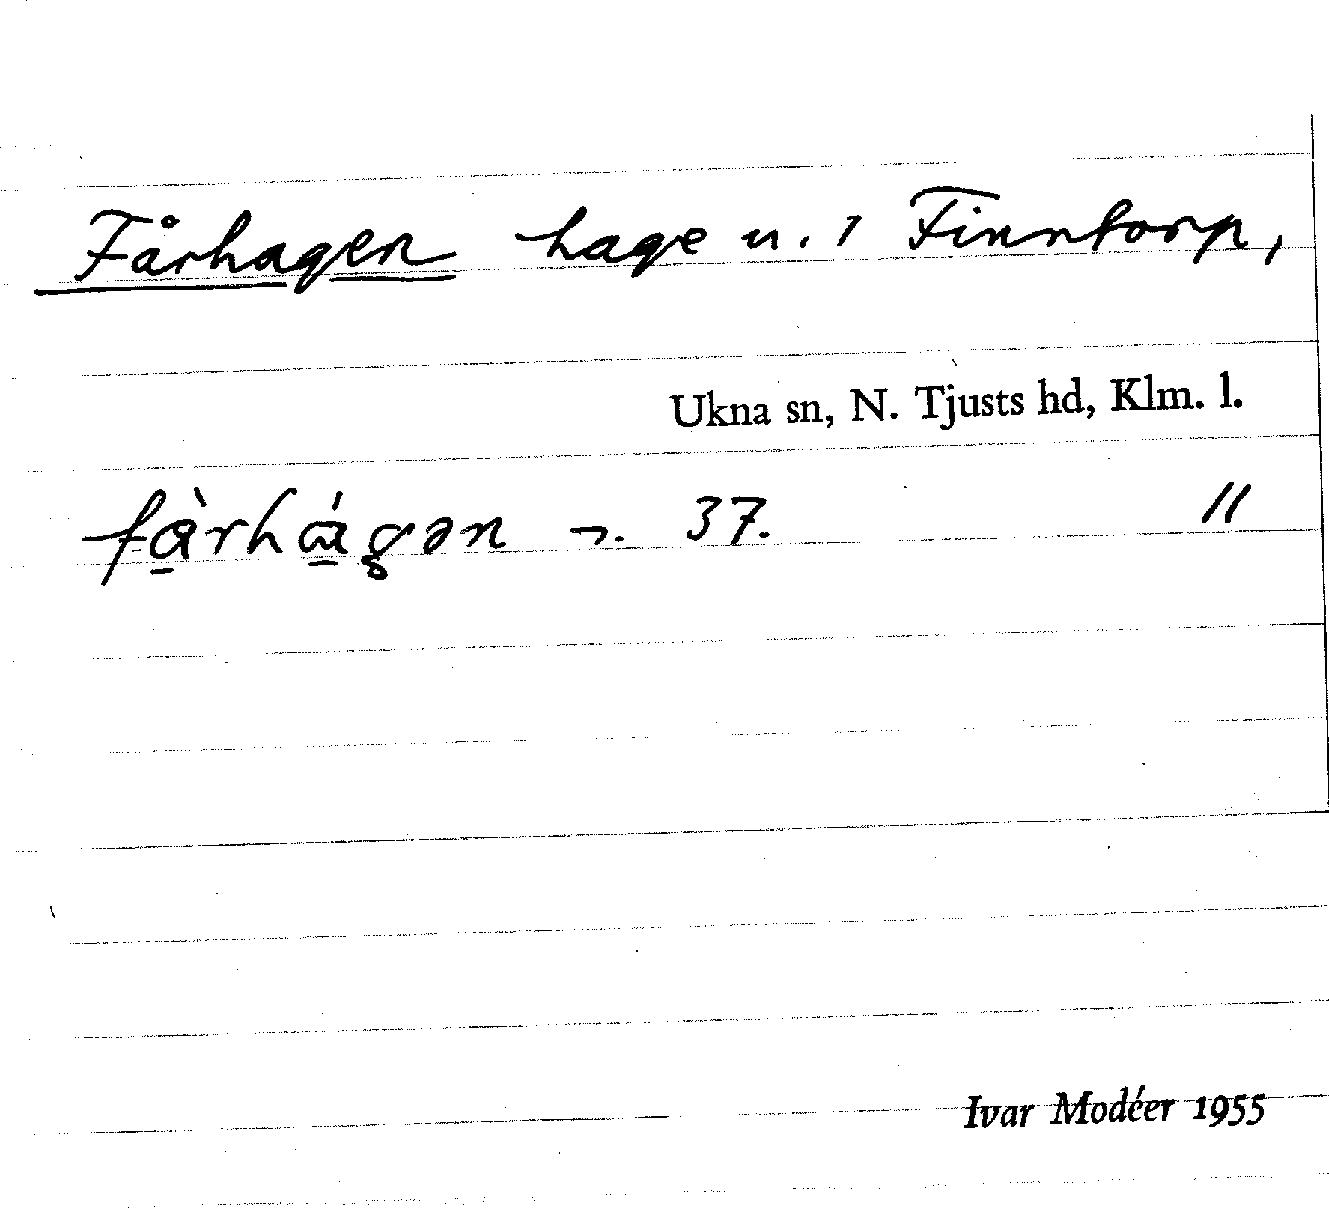 Fårhagen hage u. 1 Finntorp,
Ukna sn, N. Tjusts hd, Klm. l.
fàrhágən 37. 11
Ivar Modéer 1955